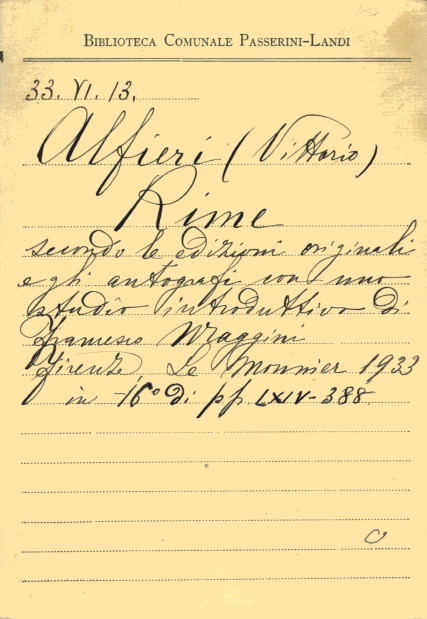 BIBLIOTECA COMUNALE PASSERINI-LANDI
33. VI. 13.
Alfieri (Vittorio)
Rime
secondo le edizioni originali
e gli autografi con uno
studio introduttivo di
Francesco Maggini
Firenze, Le Monnier 1933
in -16° di pp LXIV-388.